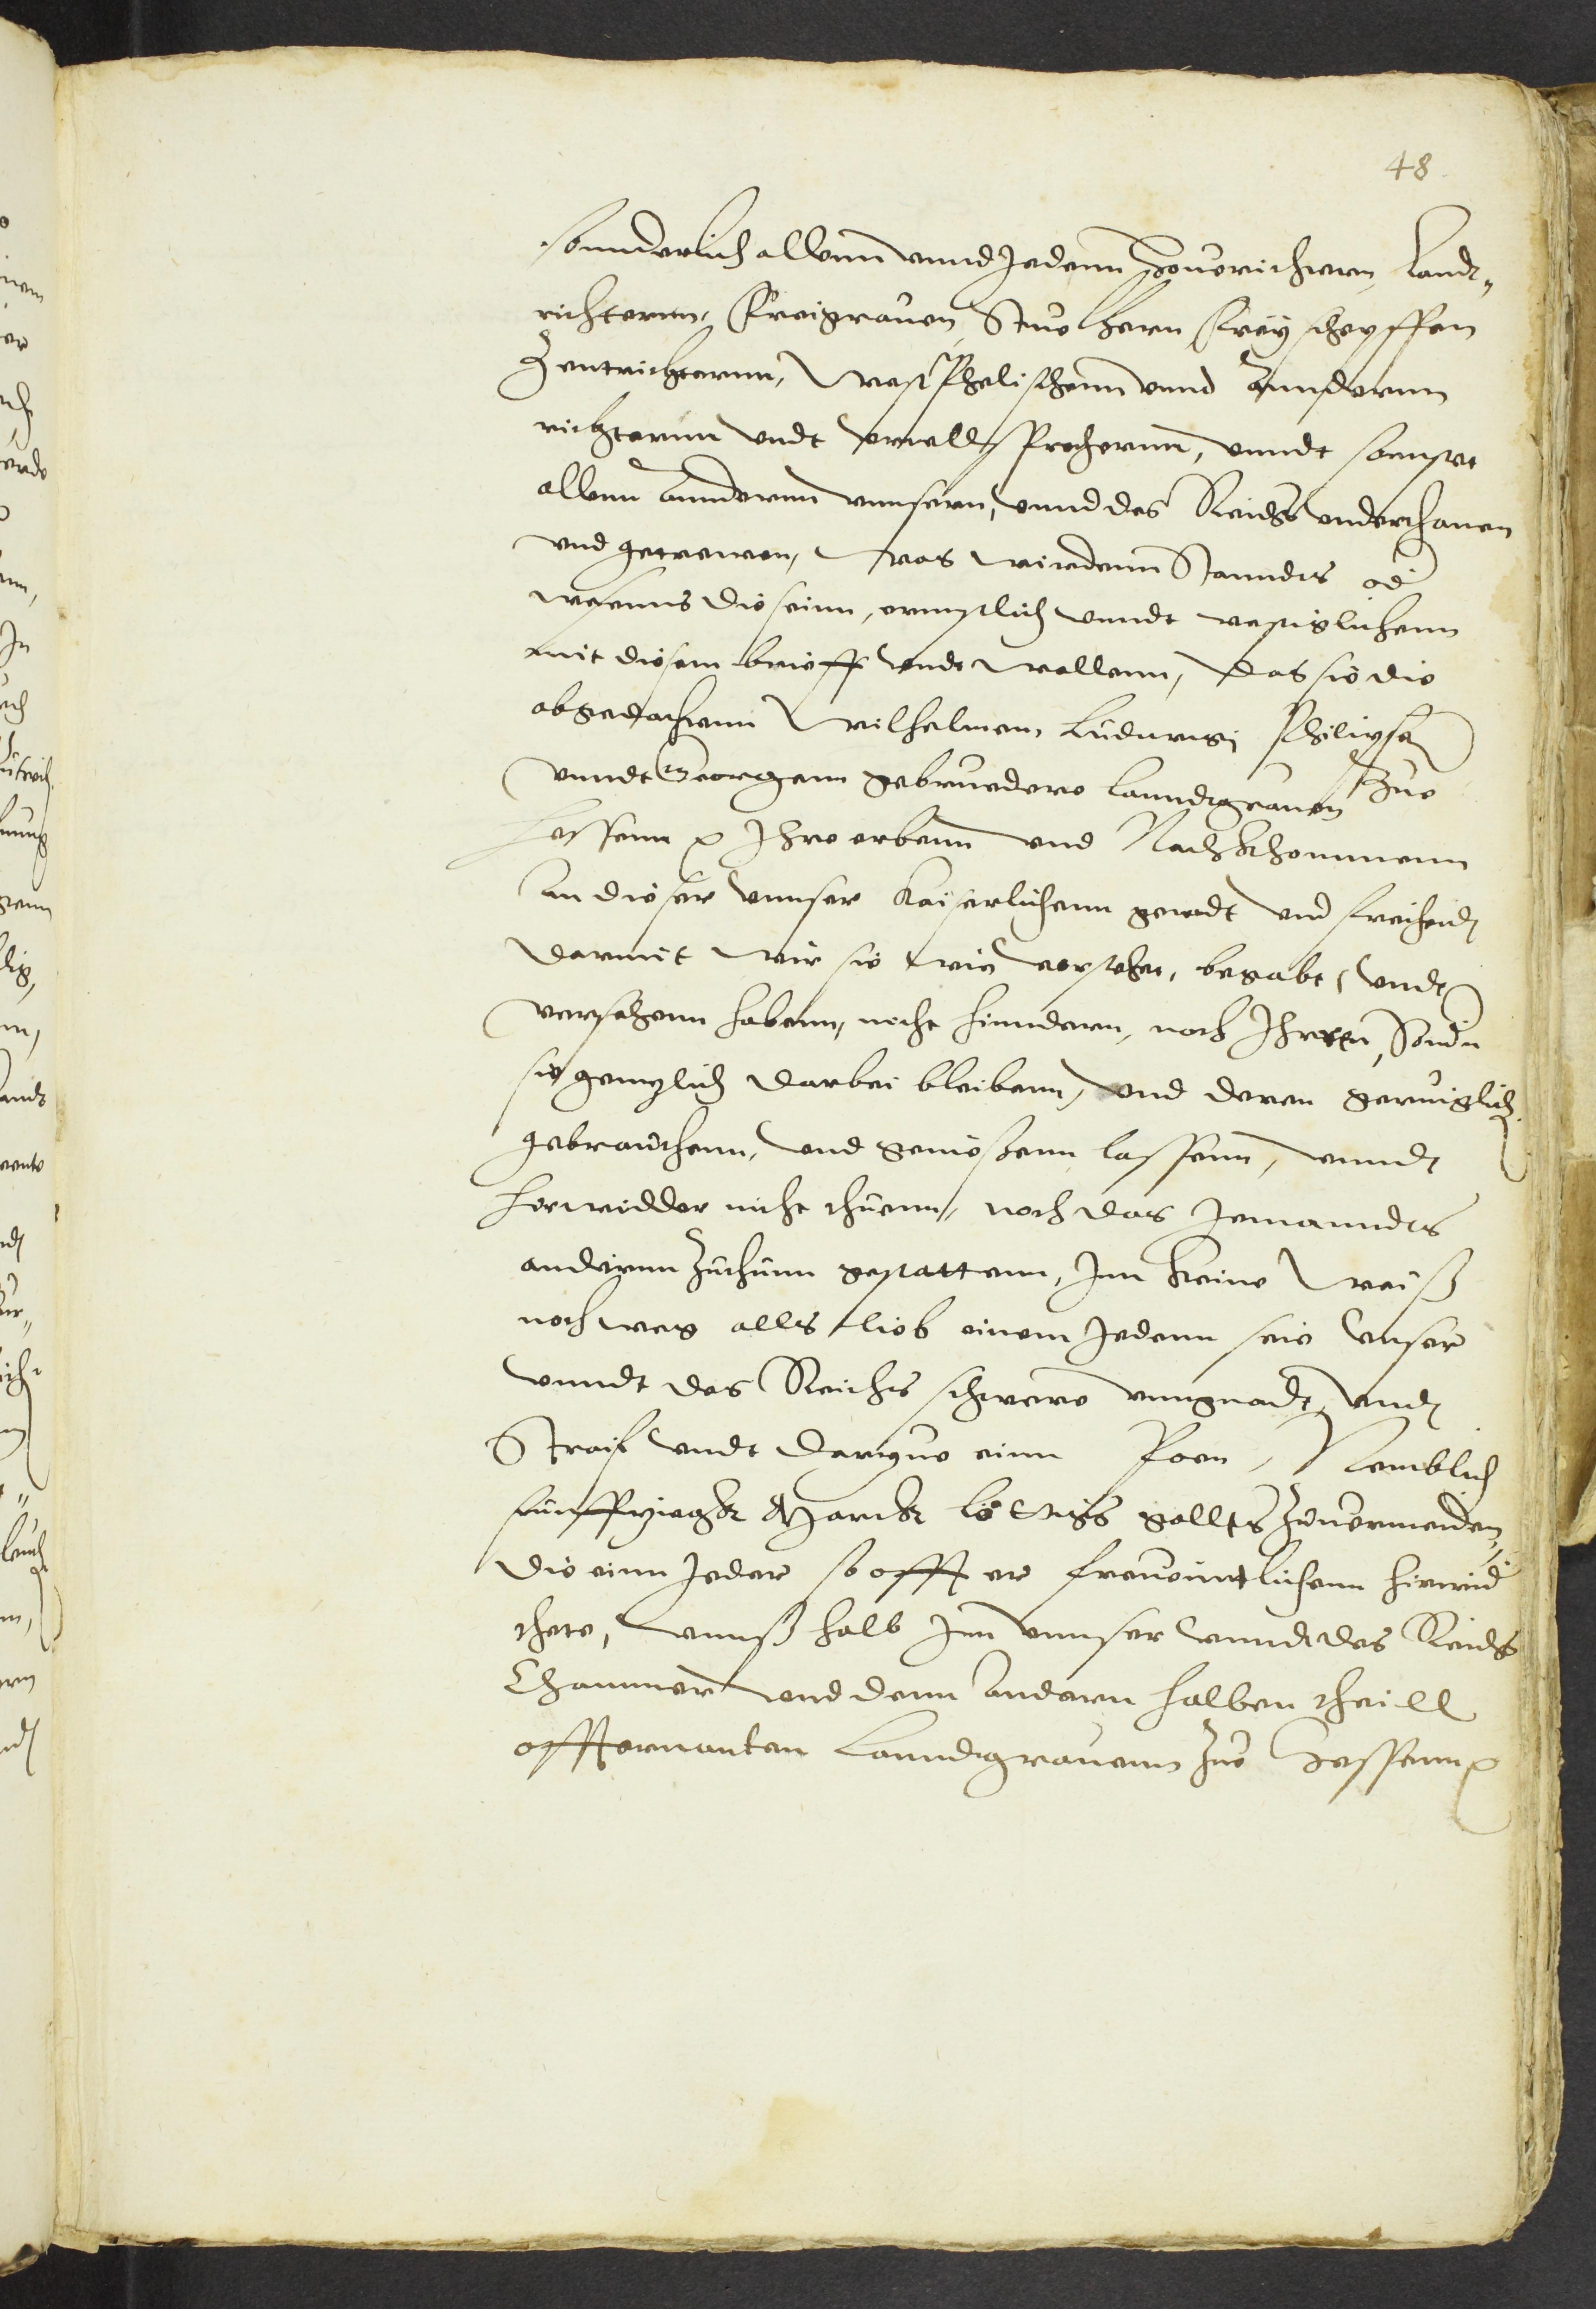 48
sonnderlich allenn vnnd Jedenn Houerichtern, Landt„
richternn, Freigrauen, Stuelhern Freyscheffen
Zentrichternn, Westphelischenn vnnd Annderenn
richternn vndt vrteillsprechernn, vnndt sonnst
allenn annderenn vnnsern, vnnd des Reichs vnderthanen
vnd getrewen, was wirdenn Stanndts od
wesenns die seinn, ernnstlich vnndt vestiglichenn
mit diesem brieff vndt wollenn, das sie die
obgedachtenn Wilhelmen Ludwigen Philipsen
vnndt Georgenn gebruedere Lanndtgrauen Zue
Hessenn Ihre erbenn vnd Nachkhommenn
An dieser vnnser Kaiserlichenn genadt vnd freiheidt
darmit wir sie wie vorstehet, begabt, vndt
versehenn habenn, nicht hinndern, noch Ihrren, Sondn
sie genntzlich darbei bleibenn, vnd deren geruiglich
gebrauchenn, vnd geniessenn lassenn, vnndt
hierwidder nicht thuenn, noch das Jemanndts
anderenn Zuthunn gestattenn, Inn keine Weiss
noch weg alls lieb einem Jedenn seie vnser
vnndt des Reichs schwere vnngnadt, vndt
Straif vndt darzue einn Poen, Nemblich
funffzigk Marckt löttigs gollts Zuuermeiden,
die einn Jeder so offt er freuenntlichenn hirwid
thete, vnns halb Inn vnnser vnnd des Reichs
Chammer vnd denn andern halben theill
offternanten Lanndtgrauenn Zue Hessenn